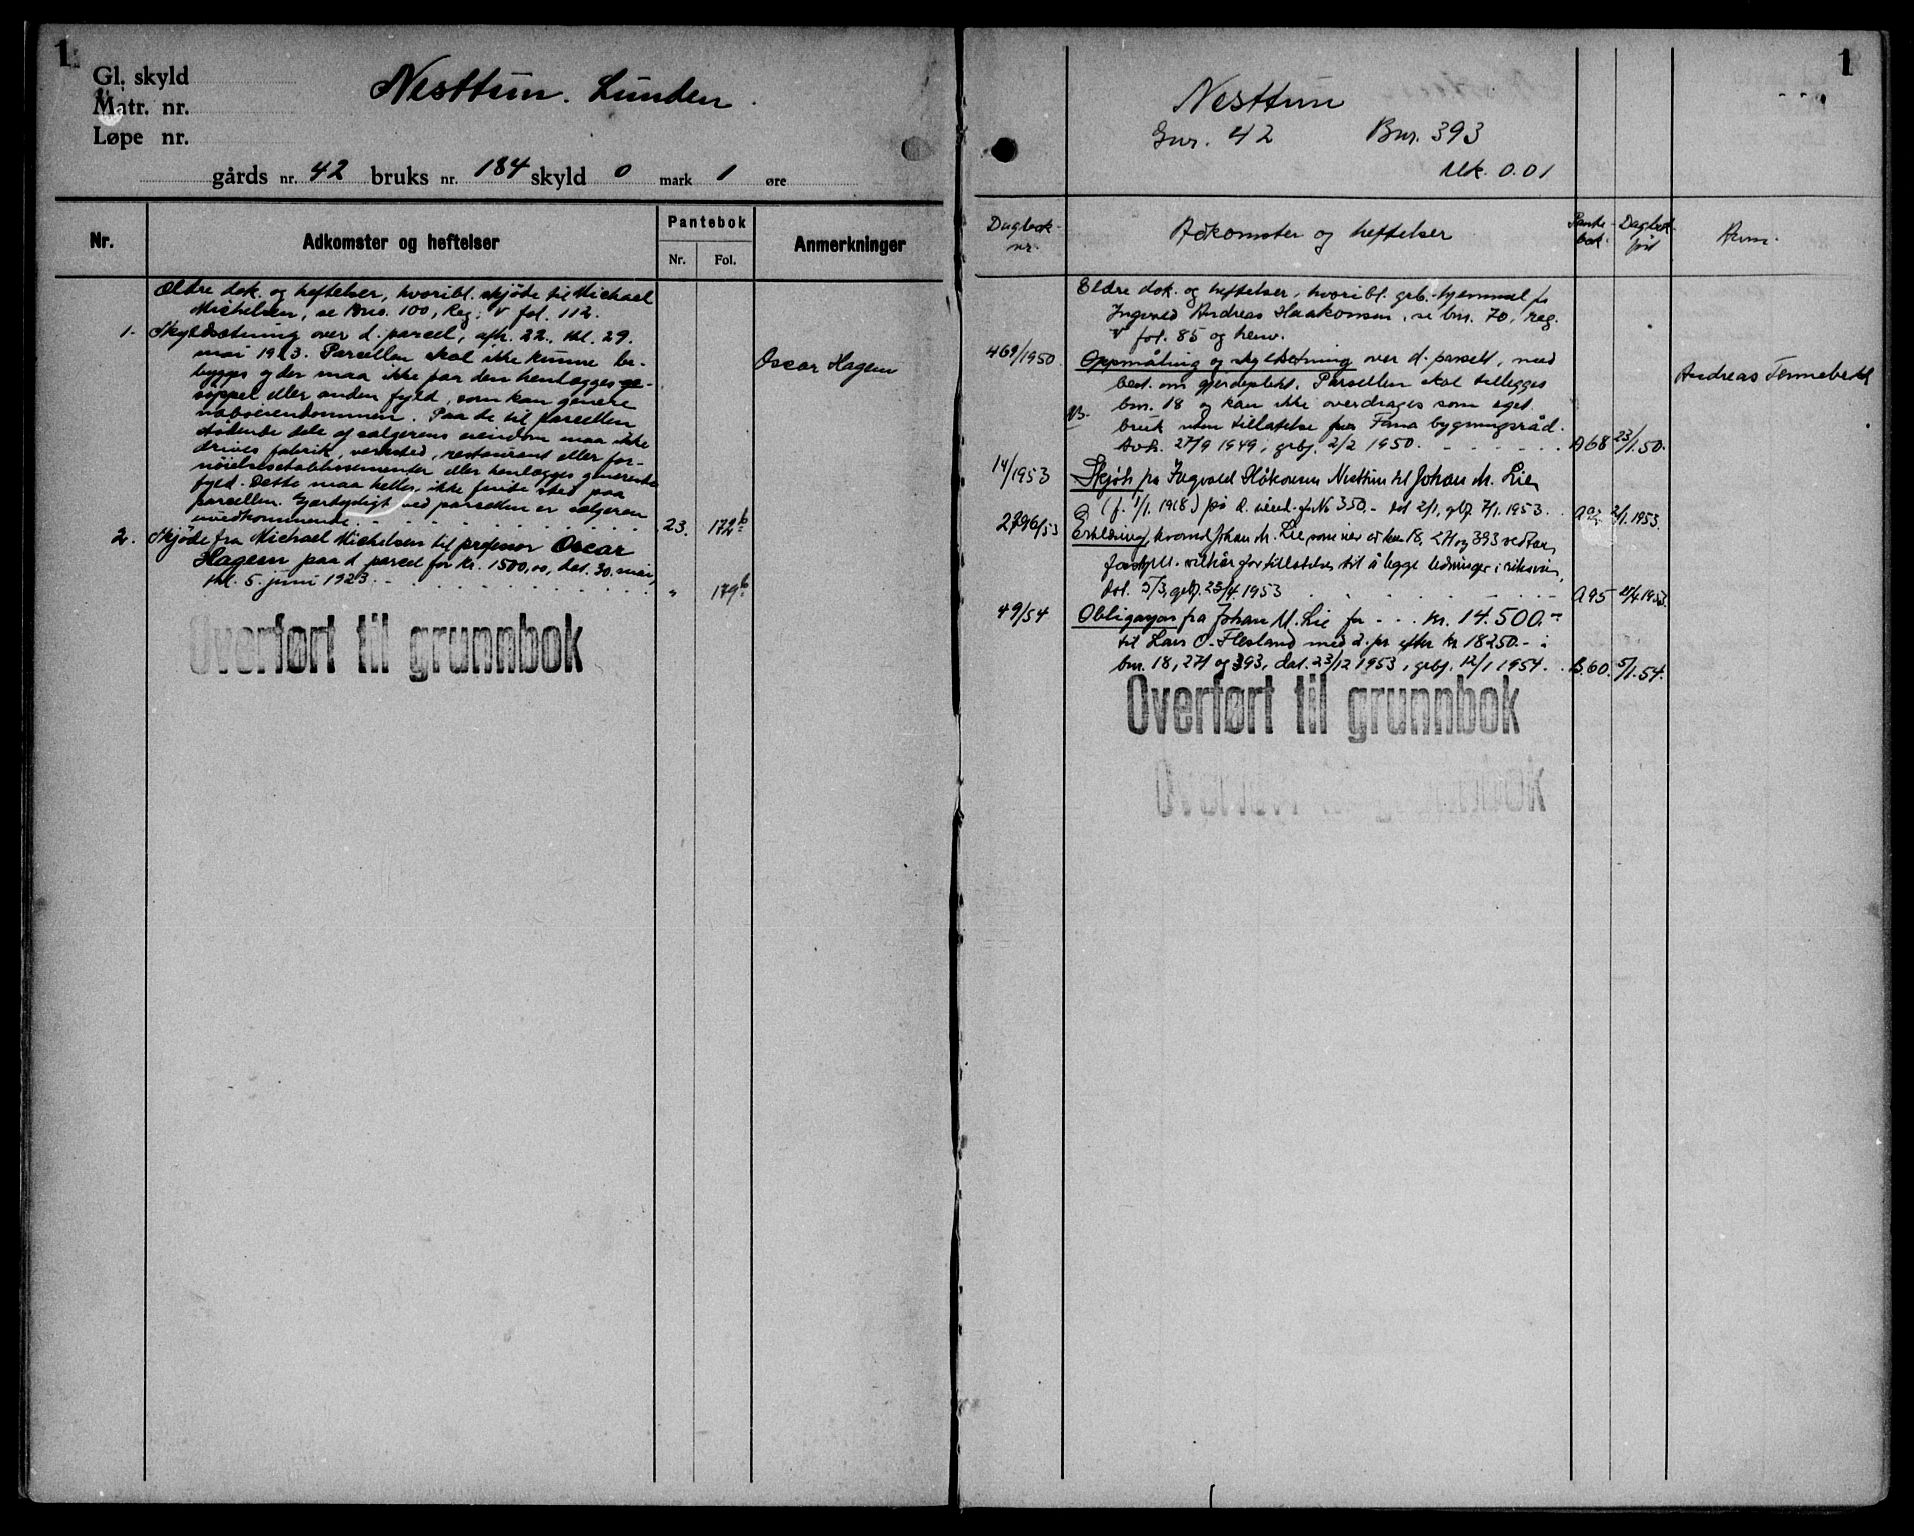 1
Gl. skyld
Matr. nr.
Løpe nr.
Nesttun. Lunden.
gårds nr. 42 bruks nr. 184 skyld 0 mark 1 øre
Nr.
Adkomster og heftelser
Pantebok
Nr. Fol.
Anmerkninger
Ældre dok. og heftelser, hvoribl. skjøde til Michael
Michelsen, se Bno. 100, Reg: V fol. 112.
1. Skyldsætning over d. parcel, afh. 22., thl. 29.
mai 1923. Parcellen skal ikke kunne be-
bygges og der maa ikke paa den henlægges ge-
søppel eller anden fyld, som kan genere
naboeiendommen. Paa de til parcellen
stødende dele af sælgerens eiendom maa ikke
drives fabrik, verksted, restaurant eller for-
nøielsesetablissementer eller henlægges generende
fyld. Dette maa heller ikke finde sted paa
parcellen. Gjærdepligt ved parcellen er sælgeren
uvedkommende. 23. 172b
Oscar Hagem
2. Skjøde fra Michael Michelsen til profesor Oscar
Hagem paa d. parcel for kr. 1500,00, dat. 30. mai,
thl. 5. juni 1923. " 179b
Overført til grunnbok
1
Nesttun
Gnr. 42 Bnr. 393
Mk. 0.01
Dagbok-
nr.
Adkomster og heftelser
Pante-
bok.
Dagbok-
ført
Anm.
Eldre dok. og heftelser, hvoribl. grb. hjemmel for
Ingvald Andreas Haakonsen, se bnr. 70, reg.
V fol. 85 og henv.
469/1950 Oppmåling og skyldsetning over d. parsell, med
best. om gjerdeplikt. Parsellen skal tillegges
bnr. 18 og kan ikke overdrages som eget
bruk uten tillatelse fra Fana bygningsråd.
Avh. 27/9 1949, grbj. 2/2 1950. A 68 23/1.50.
Andreas
14/1953 Skjøte fra Ingvald Håkonsen Nesttun til Johan M. Lie
(f. 1/1 1918) på d. eiend. for kr 350.- dat 2/1, grbf. 7/1. 1953. 2/1.1953.
2796/53 Erklæring, hvorved Johan M. Lie som eier av bnr 18, 271 og 393 vedtar
vilkår for tillatelse til å legge ledninger i riksvei,
dat. 5/3, grbf. 23/4. 1953 A 95
49/54 Obligasjon fra Johan M. Lie for - - kr. 14.500.-
til Lars O. Flesland med d. pr. efter kr 18250.- i
bnr. 18, 271 og 393, dat. 23/12 1953, grbj. 12/1 1954. B.60. 5/1.54.
Overført til grunnbok
Overført til grunnbok